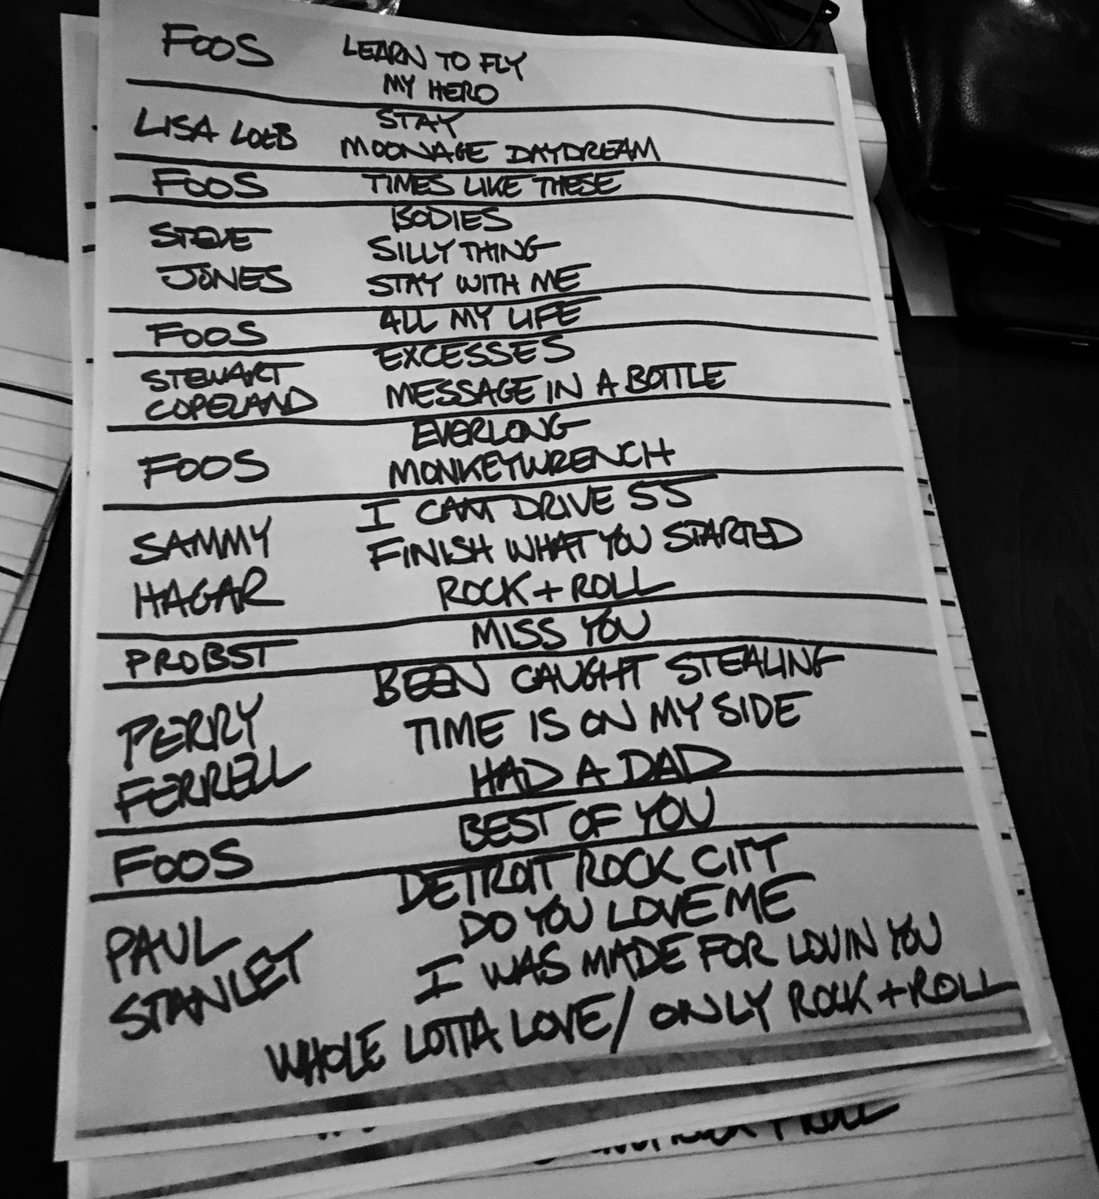 FOOS LEARN TO FLY
MY HERO
LISA LOEB STAY
MOONAGE DAYDREAM
FOOS TIMES LIKE THESE
BODIES
STEVE SILLY THING
JONES STAY WITH ME
FOOS ALL MY LIFE
STEWART EXCESSES
COPELAND MESSAGE IN A BOTTLE
EVERLONG
FOOS MONKEYWRENCH
I CANT DRIVE 55
SAMMY FINISH WHAT YOU STARTED
HAGAR ROCK + ROLL
PROBST MISS YOU
BEEN CAUGHT STEALING
PERRY TIME IS ON MY SIDE
FERRELL HAD A DAD
FOOS BEST OF YOU
DETROIT ROCK CITY
PAUL DO YOU LOVE ME
STANLEY I WAS MADE FOR LOVIN YOU
WHOLE LOTTA LOVE / ONLY ROCK + ROLL
+ ROLL